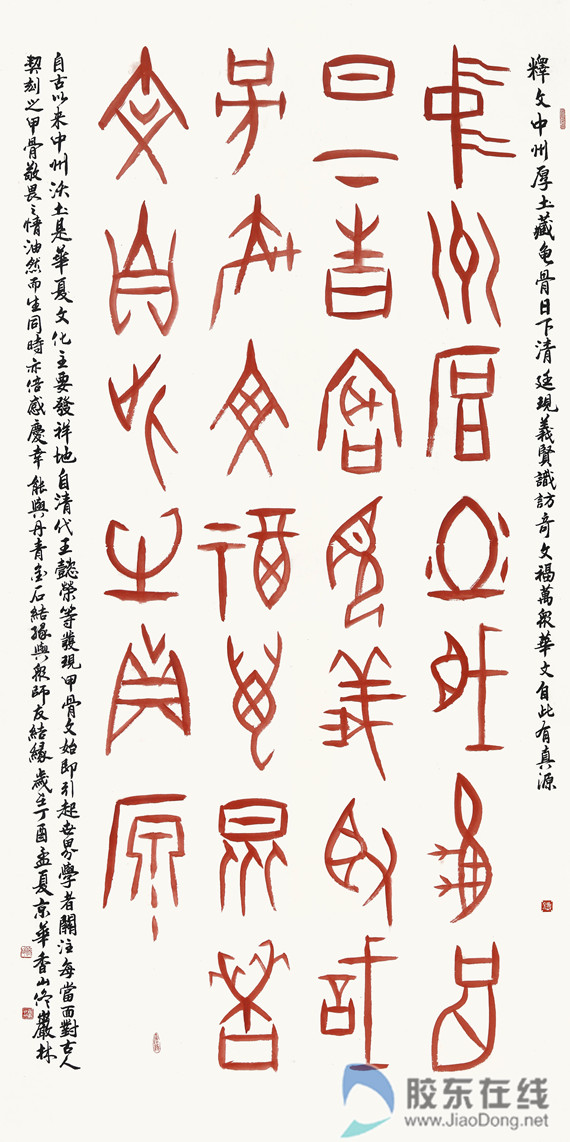 釋文中州厚土藏龟骨日下清廷現義賢識訪奇文福萬衆華文自此有真源
中州厚土藏龜骨
日下清廷現義賢識
訪奇文福萬衆華
文自此有真源
自古以来中州沃土是華夏文化主要發祥地自清代王懿榮等發現甲骨文始即引起世界學者關注每當面對古人
契刻之甲骨敬畏之情油然而生同時亦倍感慶幸能與丹青金石結緣與衆師友結緣歲在丁酉孟夏京華香山佟巖林
胶东在线
www.JiaoDong.net